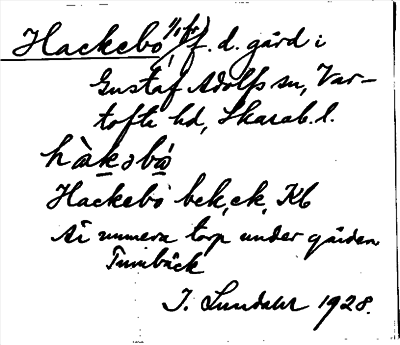 Hackebo, 1/1 (kr) f. d. gård i
Gustaf Adolfs sn, Var-
tofta hd, Skarab. l.
hàkəbó
Hackebo bek. ek. Kb
Är numera torp under gården
Tunnbäck
J. Lundahl 1928.